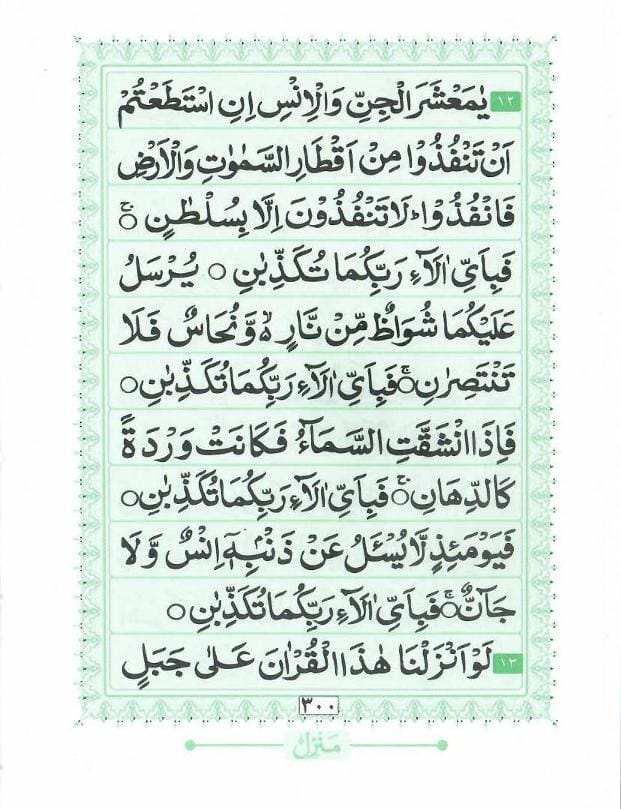 ١٢ يٰمَعْشَرَ الْجِنِّ وَالْاِنْسِ اِنِ اسْتَطَعْتُمْ
اَنْ تَنْفُذُوْا مِنْ اَقْطَارِ السَّمٰوٰتِ وَالْاَرْضِ
فَانْفُذُوْا ؕ لَا تَنْفُذُوْنَ اِلَّا بِسُلْطٰنٍ ۚ○
فَبِاَيِّ اٰلَآءِ رَبِّكُمَا تُكَذِّبٰنِ ○ يُرْسَلُ
عَلَيْكُمَا شُوَاظٌ مِّنْ نَّارٍ ۙ۬ وَّنُحَاسٌ فَلَا
تَنْتَصِرٰنِ ۚ○ فَبِاَيِّ اٰلَآءِ رَبِّكُمَا تُكَذِّبٰنِ ○
فَاِذَا انْشَقَّتِ السَّمَآءُ فَكَانَتْ وَرْدَةً
كَالدِّهَانِ ۚ○ فَبِاَيِّ اٰلَآءِ رَبِّكُمَا تُكَذِّبٰنِ ○
فَيَوْمَئِذٍ لَّا يُسْـَٔلُ عَنْ ذَنْۢبِهٖۤ اِنْسٌ وَّلَا
جَآنٌّ ۚ○ فَبِاَيِّ اٰلَآءِ رَبِّكُمَا تُكَذِّبٰنِ ○
١٣ لَوْ اَنْزَلْنَا هٰذَا الْقُرْاٰنَ عَلٰى جَبَلٍ
٣٠٠
منزل